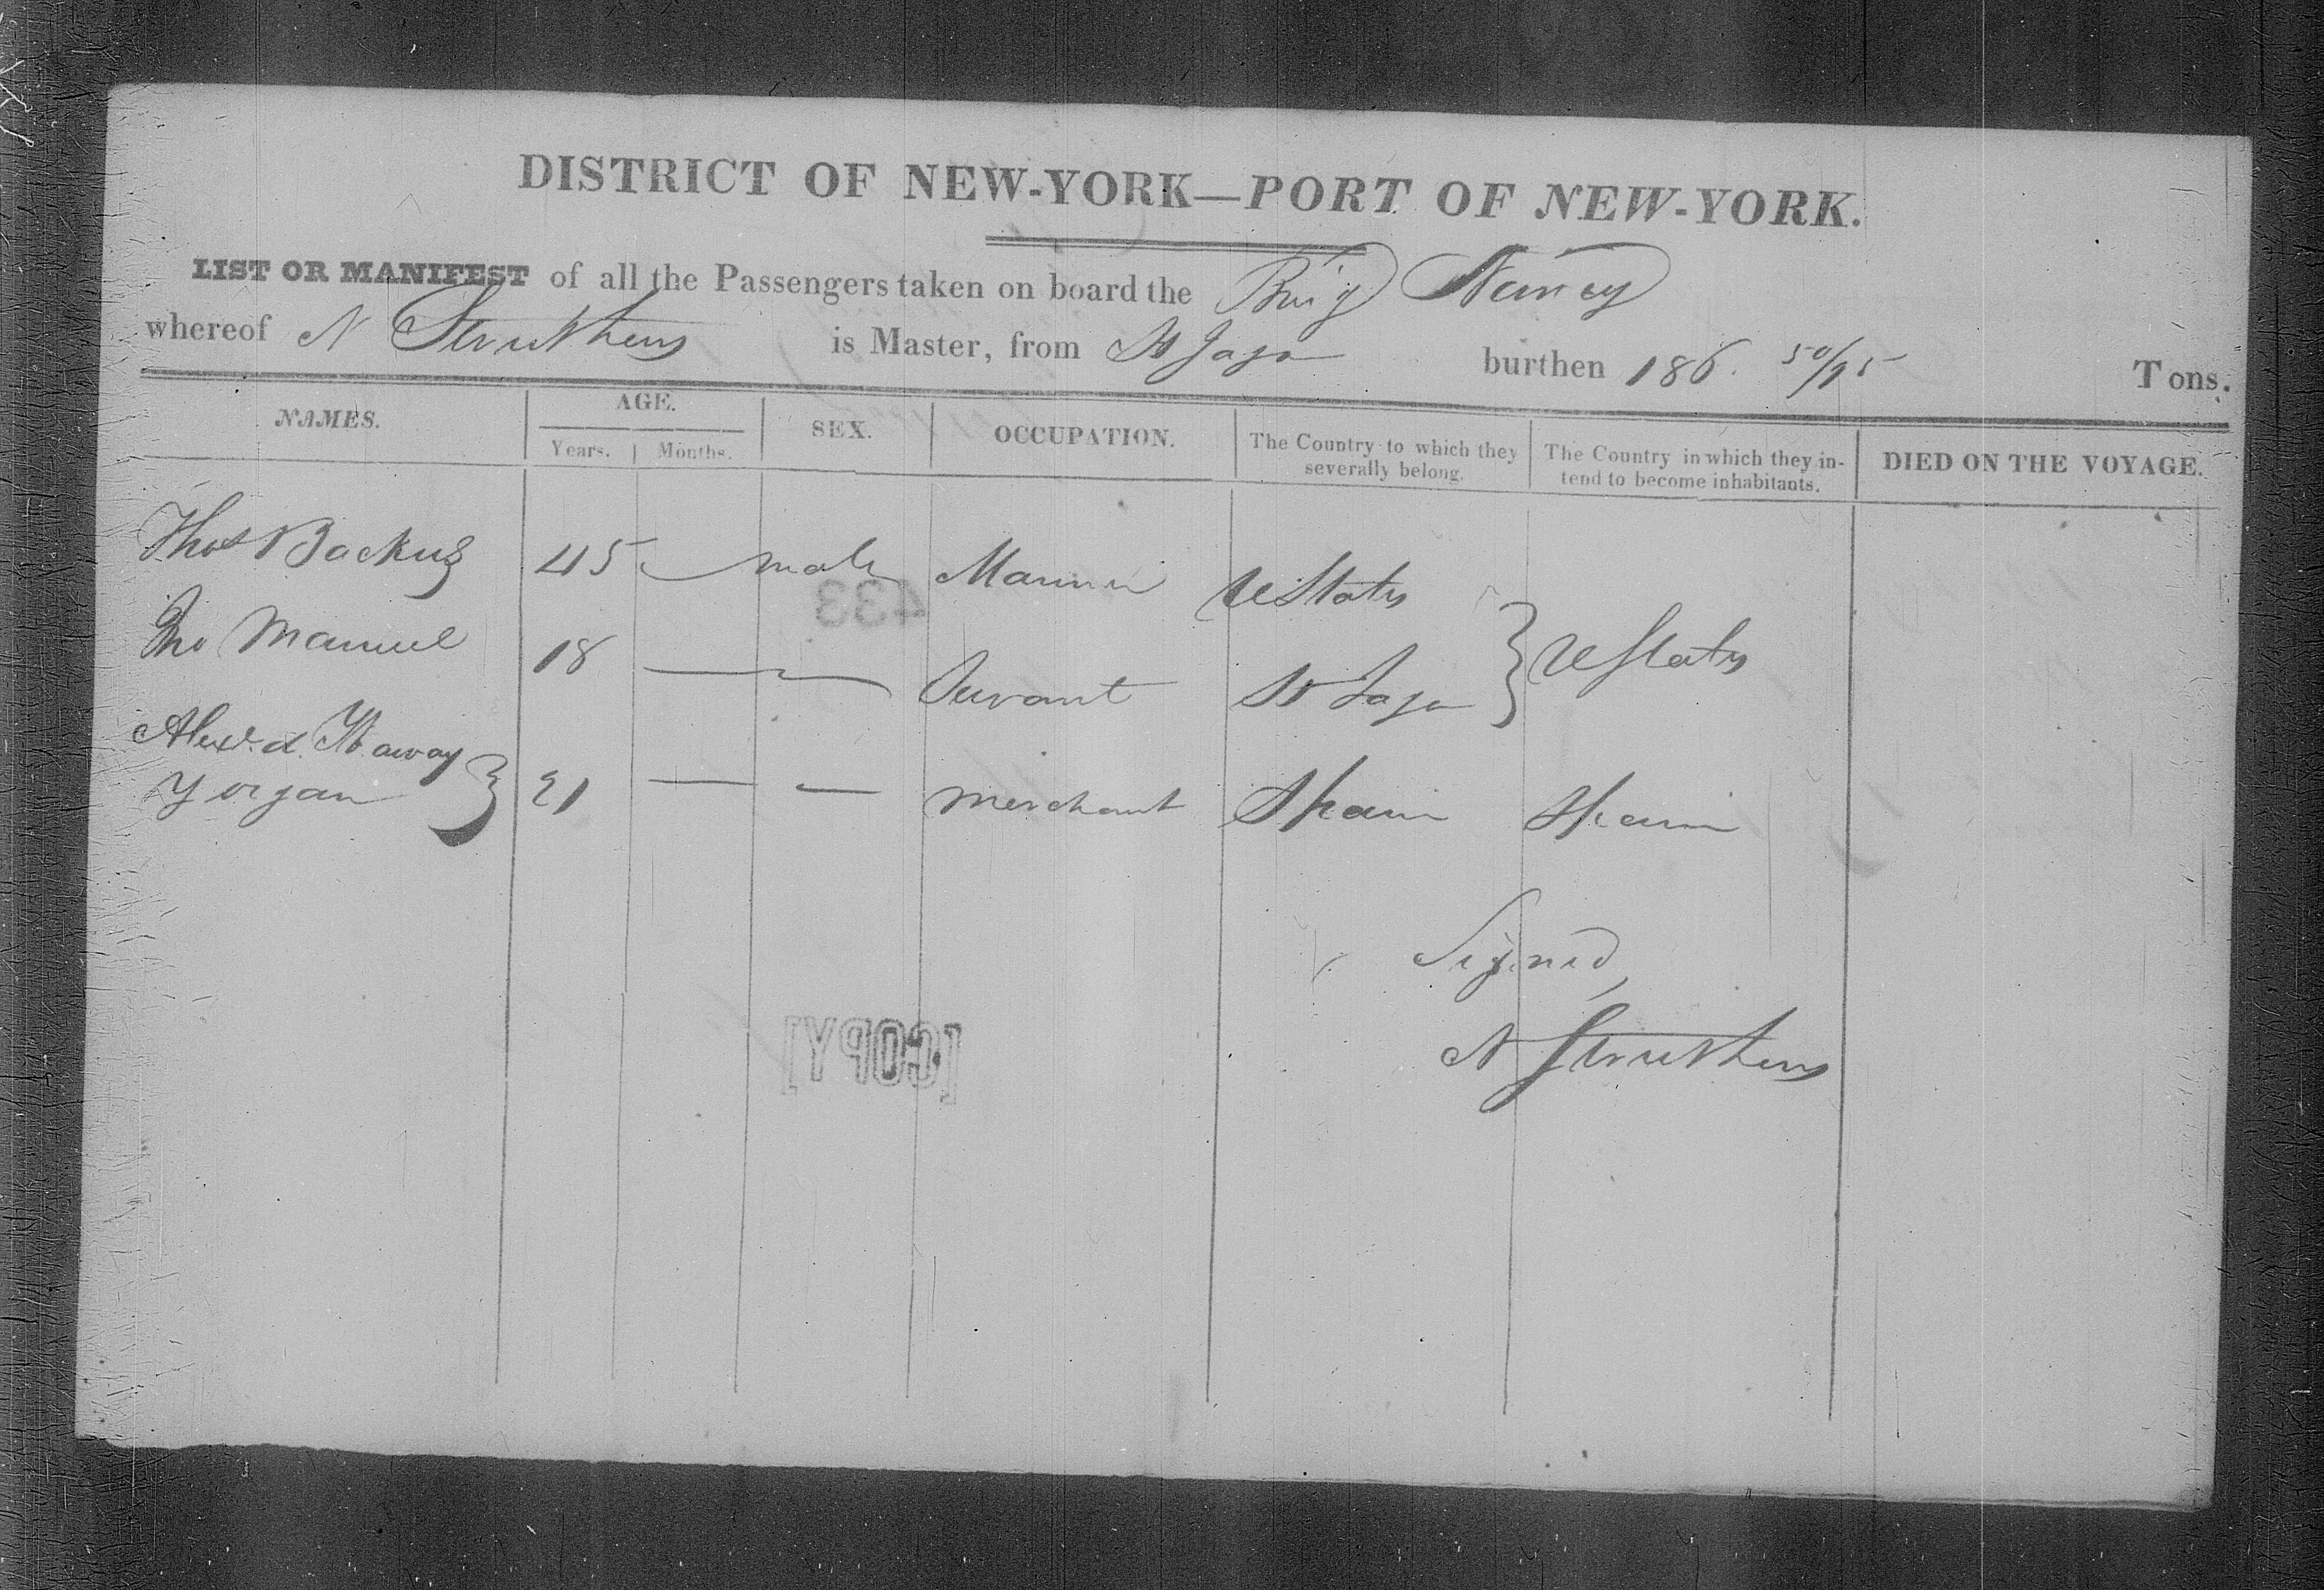 DISTRICT OF NEW-YORK—PORT OF NEW-YORK.
LIST OR MANIFEST of all the Passengers taken on board the Brig Nancy
whereof N Struthers is Master, from St Jago burthen 186. 50/95 Tons.
NAMES. AGE. SEX. OCCUPATION. The Country to which they severally belong. The Country in which they in-tend to become inhabitants. DIED ON THE VOYAGE.
Years. Months.
Thos Backus 45 male Mariner UStates
433
Jno Manuel 18 Servant St Jago } UStates
Alexd.
Yorgan } 21 merchant Spain Spain
Signed
N Struthers
[COPY]